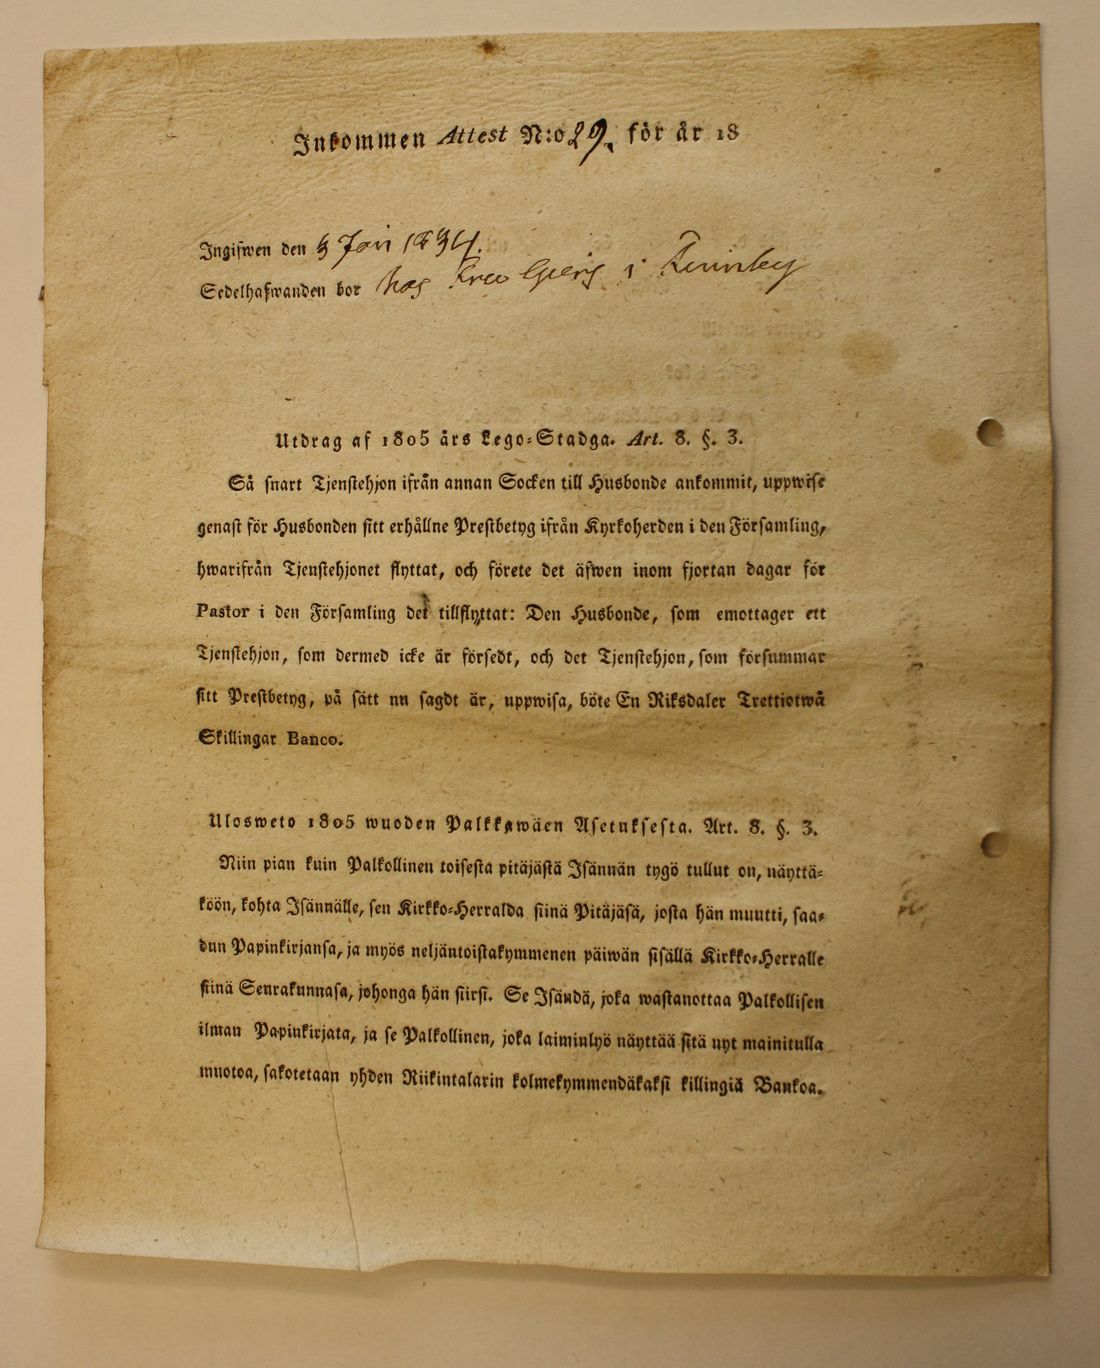 Inkommen Attest N:o 29. för år 18
Ingifwen den 3 Jan 1834.
Sedelhafwanden bor hos Fru i
Utdrag af 1805 års Lego-Stadga. Art. 8. §. 3.
Så snart Tjenstehjon ifrån annan Socken till Husbonde ankommit, uppwise
genast för Husbonden sitt erhållne Prestbetyg ifrån Kyrkoherden i den Församling,
hwarifrån Tjenstehjonet flyttat, och förete det äfwen inom fjortan dagar för
Pastor i den Församling det tillflyttat: Den Husbonde, som emottager ett
Tjenstehjon, som dermed icke är försedt, och det Tjenstehjon, som försummar
sitt Prestbetyg, på sätt nu sagdt är, uppwisa, böte En Riksdaler Trettiotwå
Skillingar Banco.
Ulosweto 1805 wuoden Palkkawäen Asetuksesta. Art. 8. §. 3.
Niin pian kuin Palkollinen toisesta pitäjästä Isännän tygö tullut on, näyttä-
köön, kohta Isännälle, sen Kirkko-Herralda siinä Pitäjäsä, josta hän muutti, saa-
dun Papinkirjansa, ja myös neljäntoistakymmenen päiwän sisällä Kirkko-Herralle
siinä Seurakunnasa, johonga hän siirsi. Se Isändä, joka wastanottaa Palkollisen
ilman Papinkirjata, ja se Palkollinen, joka laiminlyö näyttää sitä nyt mainitulla
muotoa, sakotetaan yhden Riikintalarin kolmekymmendäkaksi killingiä Bankoa.